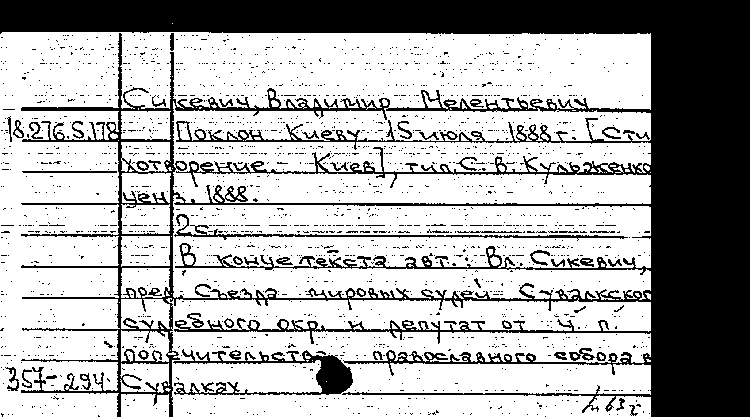 Сикевич, Владимир Мелентьевич
18.276.S.178 Поклон Киеву 15 июля 1888 г. [Сти
хотворение. - Киев], тип. С. В. Кульженко
ценз. 1888.
2 с.
В конце текста авт.: Вл. Сикевич,
пред. Съезда мировых судей Сувалкског
судебного окр. и депутат от Ч. п.
попечительства православного собора в
357-294 Сувалках.